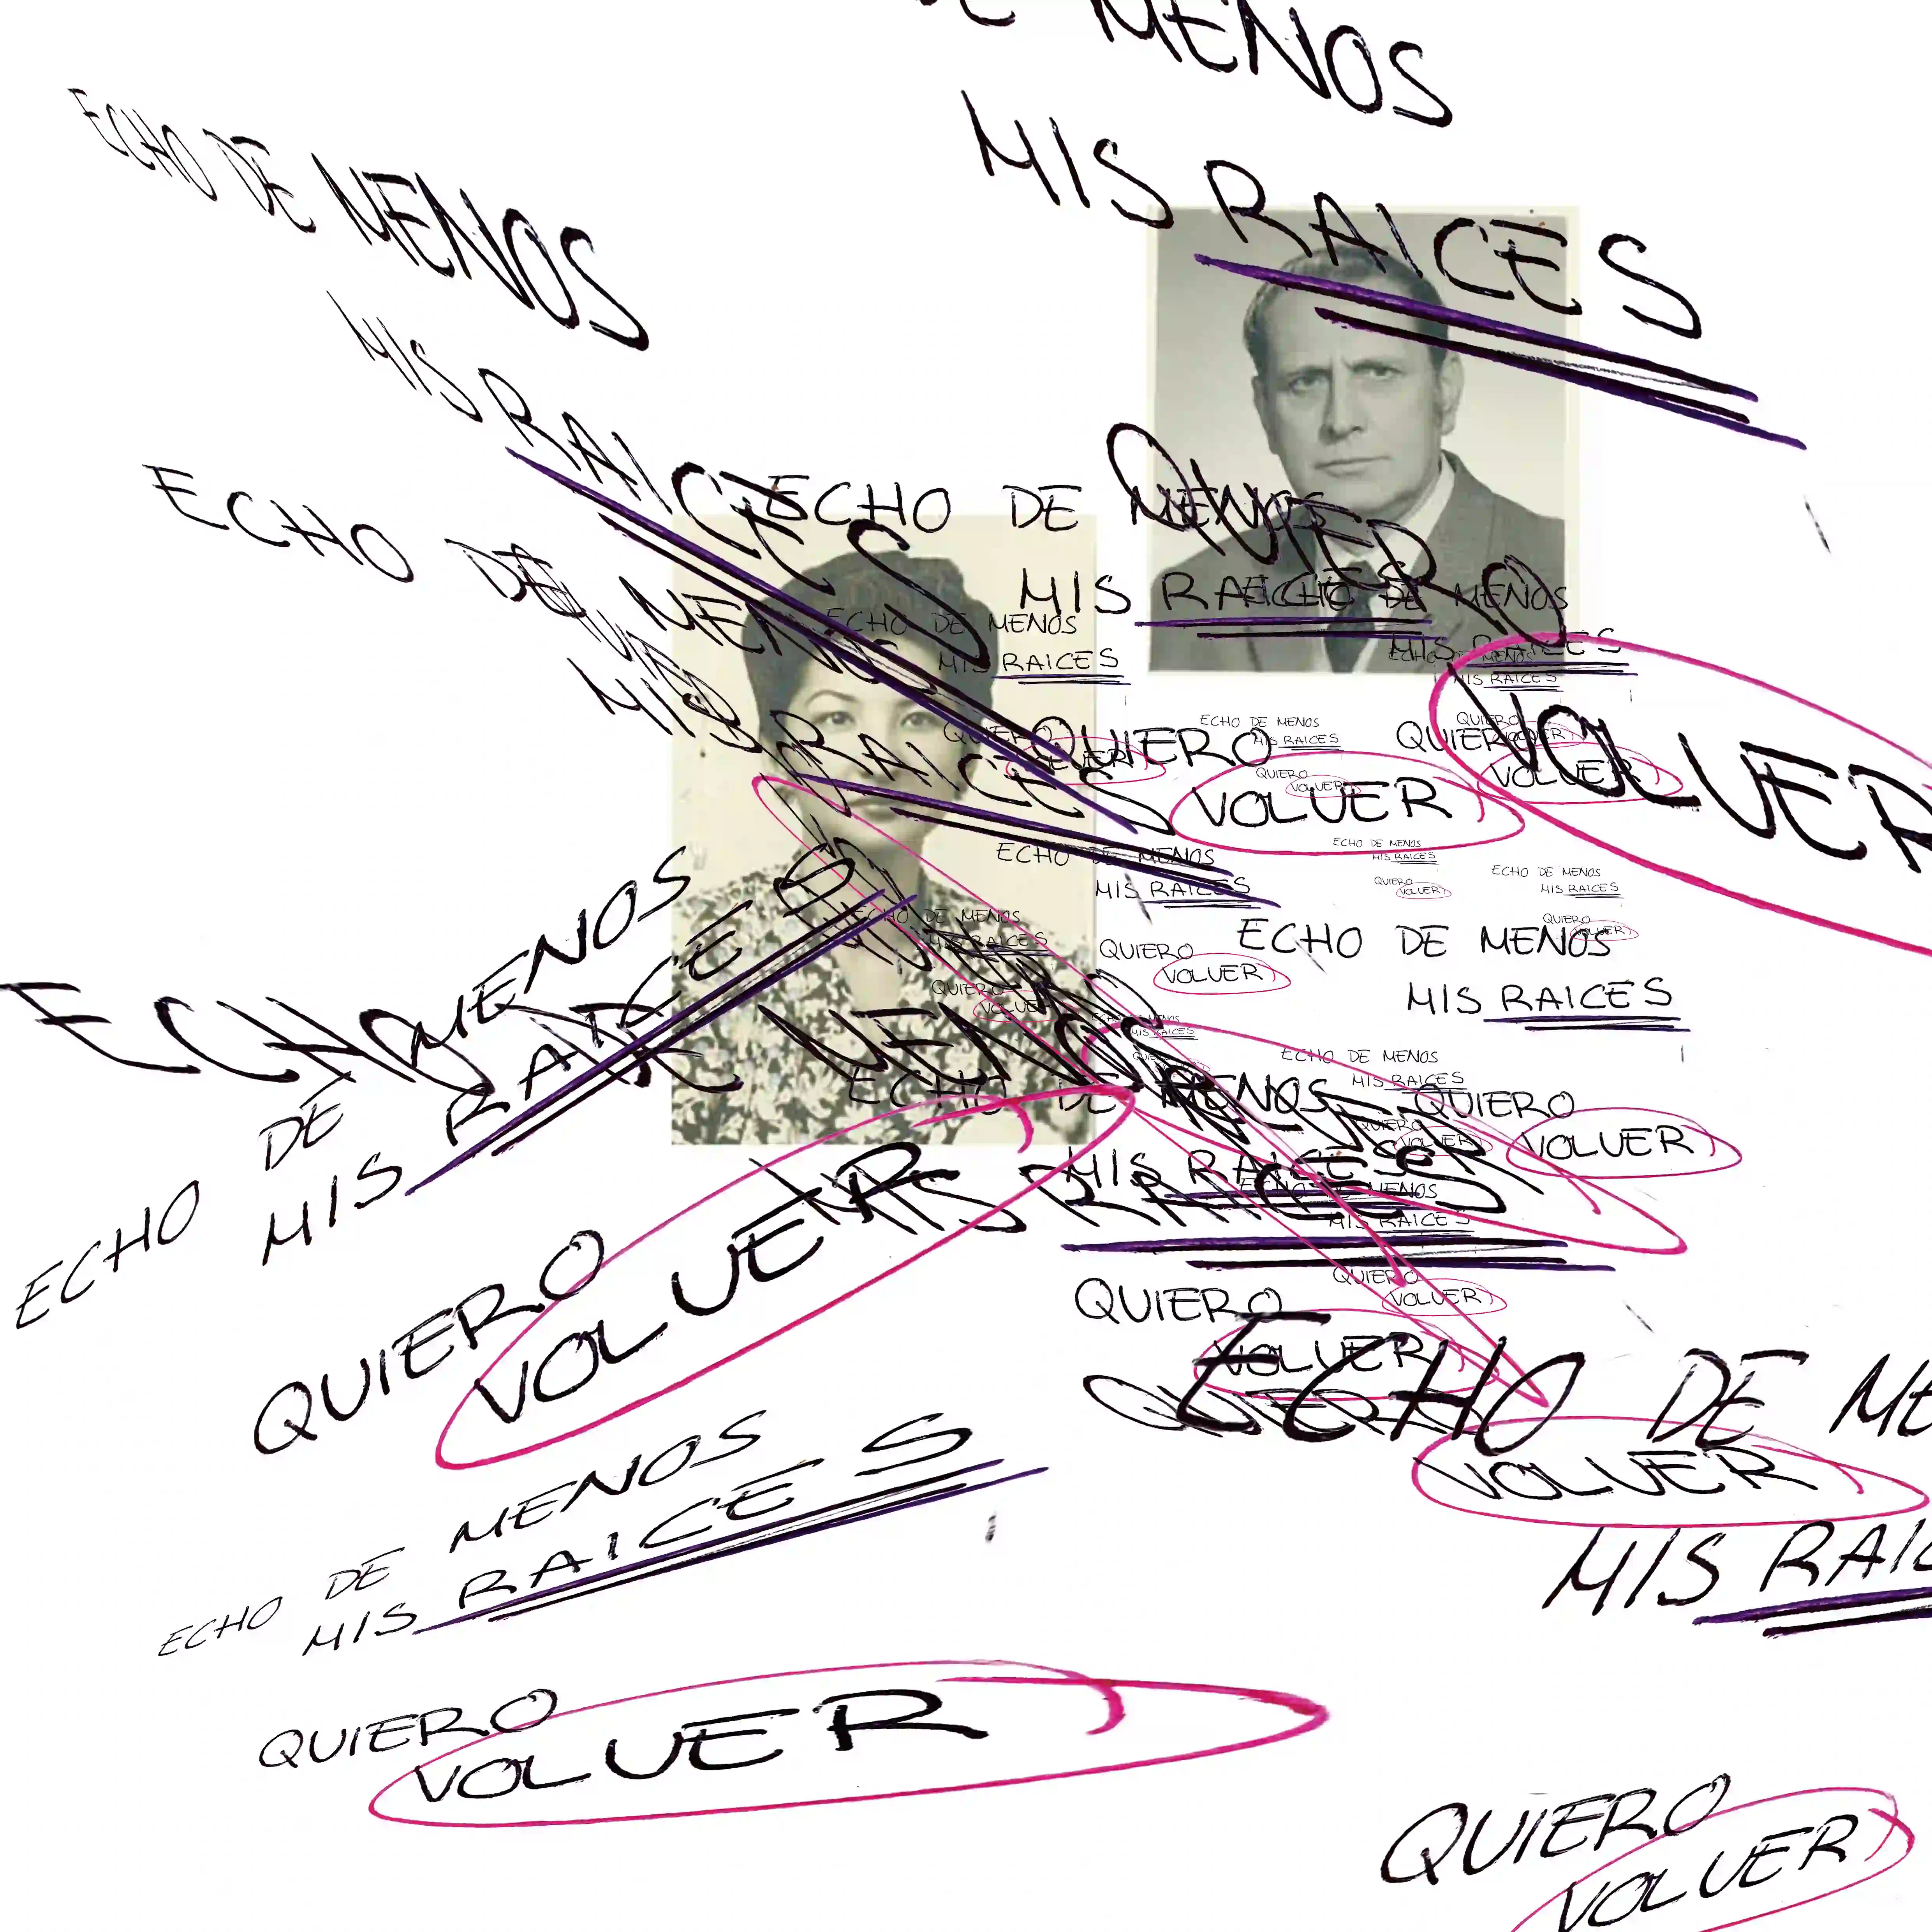 DE MENOS
MIS RAICES
ECHO DE MENOS
MIS RAICES
ECHO DE MENOS
MIS RAICES
ECHO DE MENOS
MIS RAICES
QUIERO
VOLVER
ECHO DE MENOS
MIS RAICES
QUIERO
VOLVER
ECHO DE MENOS
MIS RAICES
QUIERO
VOLVER
ECHO DE MENOS
MIS RAICES
QUIERO
VOLVER
ECHO DE MENOS
MIS RAICES
QUIERO
VOLVER
QUIERO
VOLVER
ECHO DE MENOS
MIS RAICES
QUIERO
VOLVER
ECHO DE MENOS
MIS RAICES
QUIERO
VOLVER
ECHO DE MENOS
MIS RAICES
QUIERO
VOLVER
ECHO DE MENOS
MIS RAICES
QUIERO
VOLVER
ECHO DE MENOS
MIS RAICES
QUIERO
VOLVER
ECHO DE MENOS
MIS RAICES
ECHO DE MENOS
MIS RAICES
QUIERO
VOLVER
ECHO DE MENOS
MIS RAICES
QUIERO
VOLVER
ECHO DE MENOS
MIS RAICES
QUIERO
VOLVER
ECHO DE MENOS
MIS RAICES
QUIERO
VOLVER
ECHO DE
MIS
VOLVER
ECHO DE MENOS
MIS RAICES
QUIERO
VOLVER
QUIERO
VOLVER